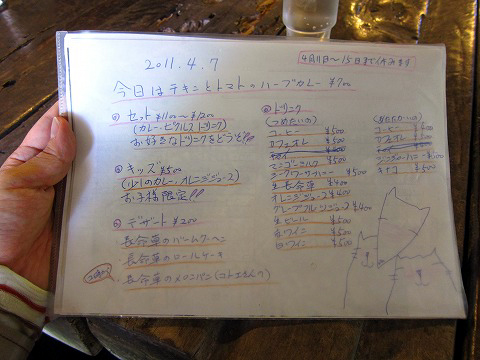 2011.4.7
4月11日〜15日までお休みます
今日はチキンとトマトのハーブカレー ¥700
◎ セット ¥1100〜¥1200
(カレー・ピクルス・ドリンク)
お好きなドリンクをどうぞ!!
◎ キッズ ¥500
(小リのカレー、オレンジジュース)
お子様限定!!
◎ デザート ¥200
・長命草のバームクーヘン
・長命草のロールケーキ
・長命草のメロンパン
◎ ドリンク
(つめたいの)
コーヒー ¥500
カフェオレ ¥500
マンゴーミルク ¥500
シークワーサーハニー ¥500
生長命草 ¥400
オレンジジュース ¥400
グレープフルーツジュース ¥400
生ビール ¥500
赤ワイン ¥500
白ワイン ¥500
(あたたかいの)
コーヒー ¥400
カフェオレ
ジンジャーハニー ¥500